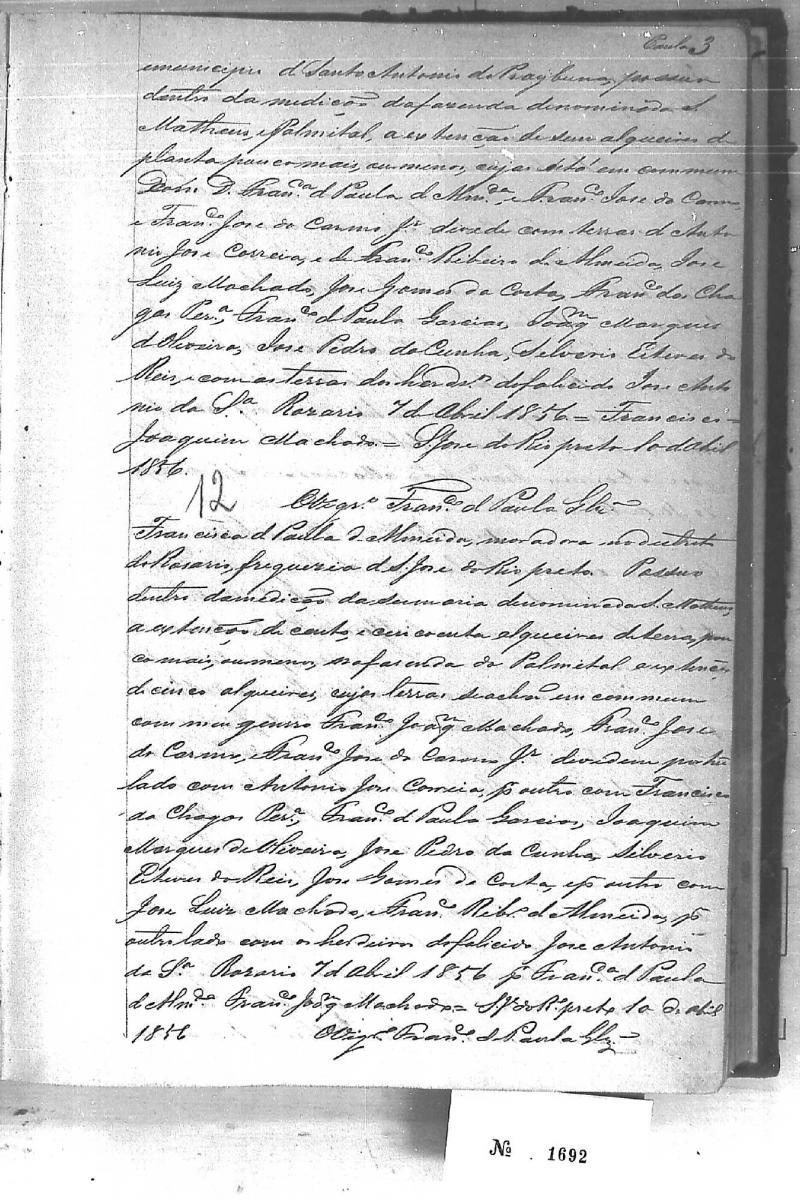 Paula 3
emunicipio d Santo Antonio do Paraybuna, possuo
dentro da medição dafazenda denominada S.
Matheus, e Palmital, a extenção de sem alqueires de
planta pouco mais, ou menos, cujas sitõ em commum
Com D. Fran.ca d Paula d Alm.da e Fran.co Jose do Carm
e Fran.co Jose do Carmo J.r divede com terras d Anto
nio Jose Correia, e de Fran.co Ribeiro de Almeida, Jose
Luiz Machado, Jose Gomes da Costa, Fran.co das Cha
gas Per.a, Fran.co d Paula Garcias, Joaq.m Marques
d Oliveira, Jose Pedro da Cunha, Silverio Esteves do
Reis, e com as terras dos herdr.os dofalicido Jose Anto
nio da S.a Rozario 7 d Abril 1856 = Francisco =
Joaquim Machado = S Jose do Rio preto 10 d Abril
1856.
12 O Vigr.o Fran.co d Paula Glz
Francisca d Paula d Almeida, moradora no destrito
do Rosario, freguezia d S. Jose do Rio preto. Possuo
dentro damedição da sesmaria denominada S. Matheus,
a extenção de cento, e cincoenta alqueires de terra, pou
co mais, ou menos, nafazenda do Palmital a extenção
de cinco alqueires, cujas terras seachão em commum
com meu genro Fran.co Joaq.m Machado, Fran.co Jose
do Carmo, e Fran.co Jose do Carmo J.r devedem por hũ
lado com Antonio Jose Correia, p outro com Francisco
da Chagas Per.a, Fran.co d Paula Garcias, Joaquim
Marques de Oliveira, Jose Pedro da Cunha, Silverio
Esteves do Reis, Jose Gomes da Costa, e p outro com
Jose Luiz Machado, e Fran.co Ribr.o d Almeida, p
outro lado com os herdeiros dofalicido Jose Antonio
da S.a Rozario 7 d Abril 1856 p Fran.ca d Paula
d Alm.da Fran.co Joaq.m Machado = S. J. do R. preto 10 d Abril
1856 O Vigr.o Fran.co d Paula Glz
Nº 1692